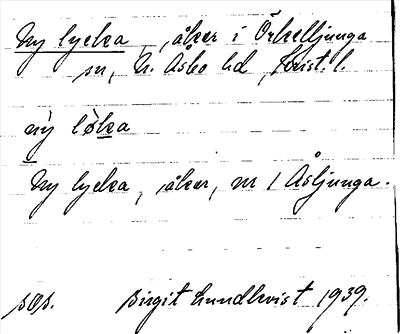 Ny lycka, åker i Örkelljunga
sn, N. Åsbo hd, Krist. l.
ny̍ løka
Ny lycka, åker, nr 1 Åsljunga.
sos. Birgit Lundkvist 1939.